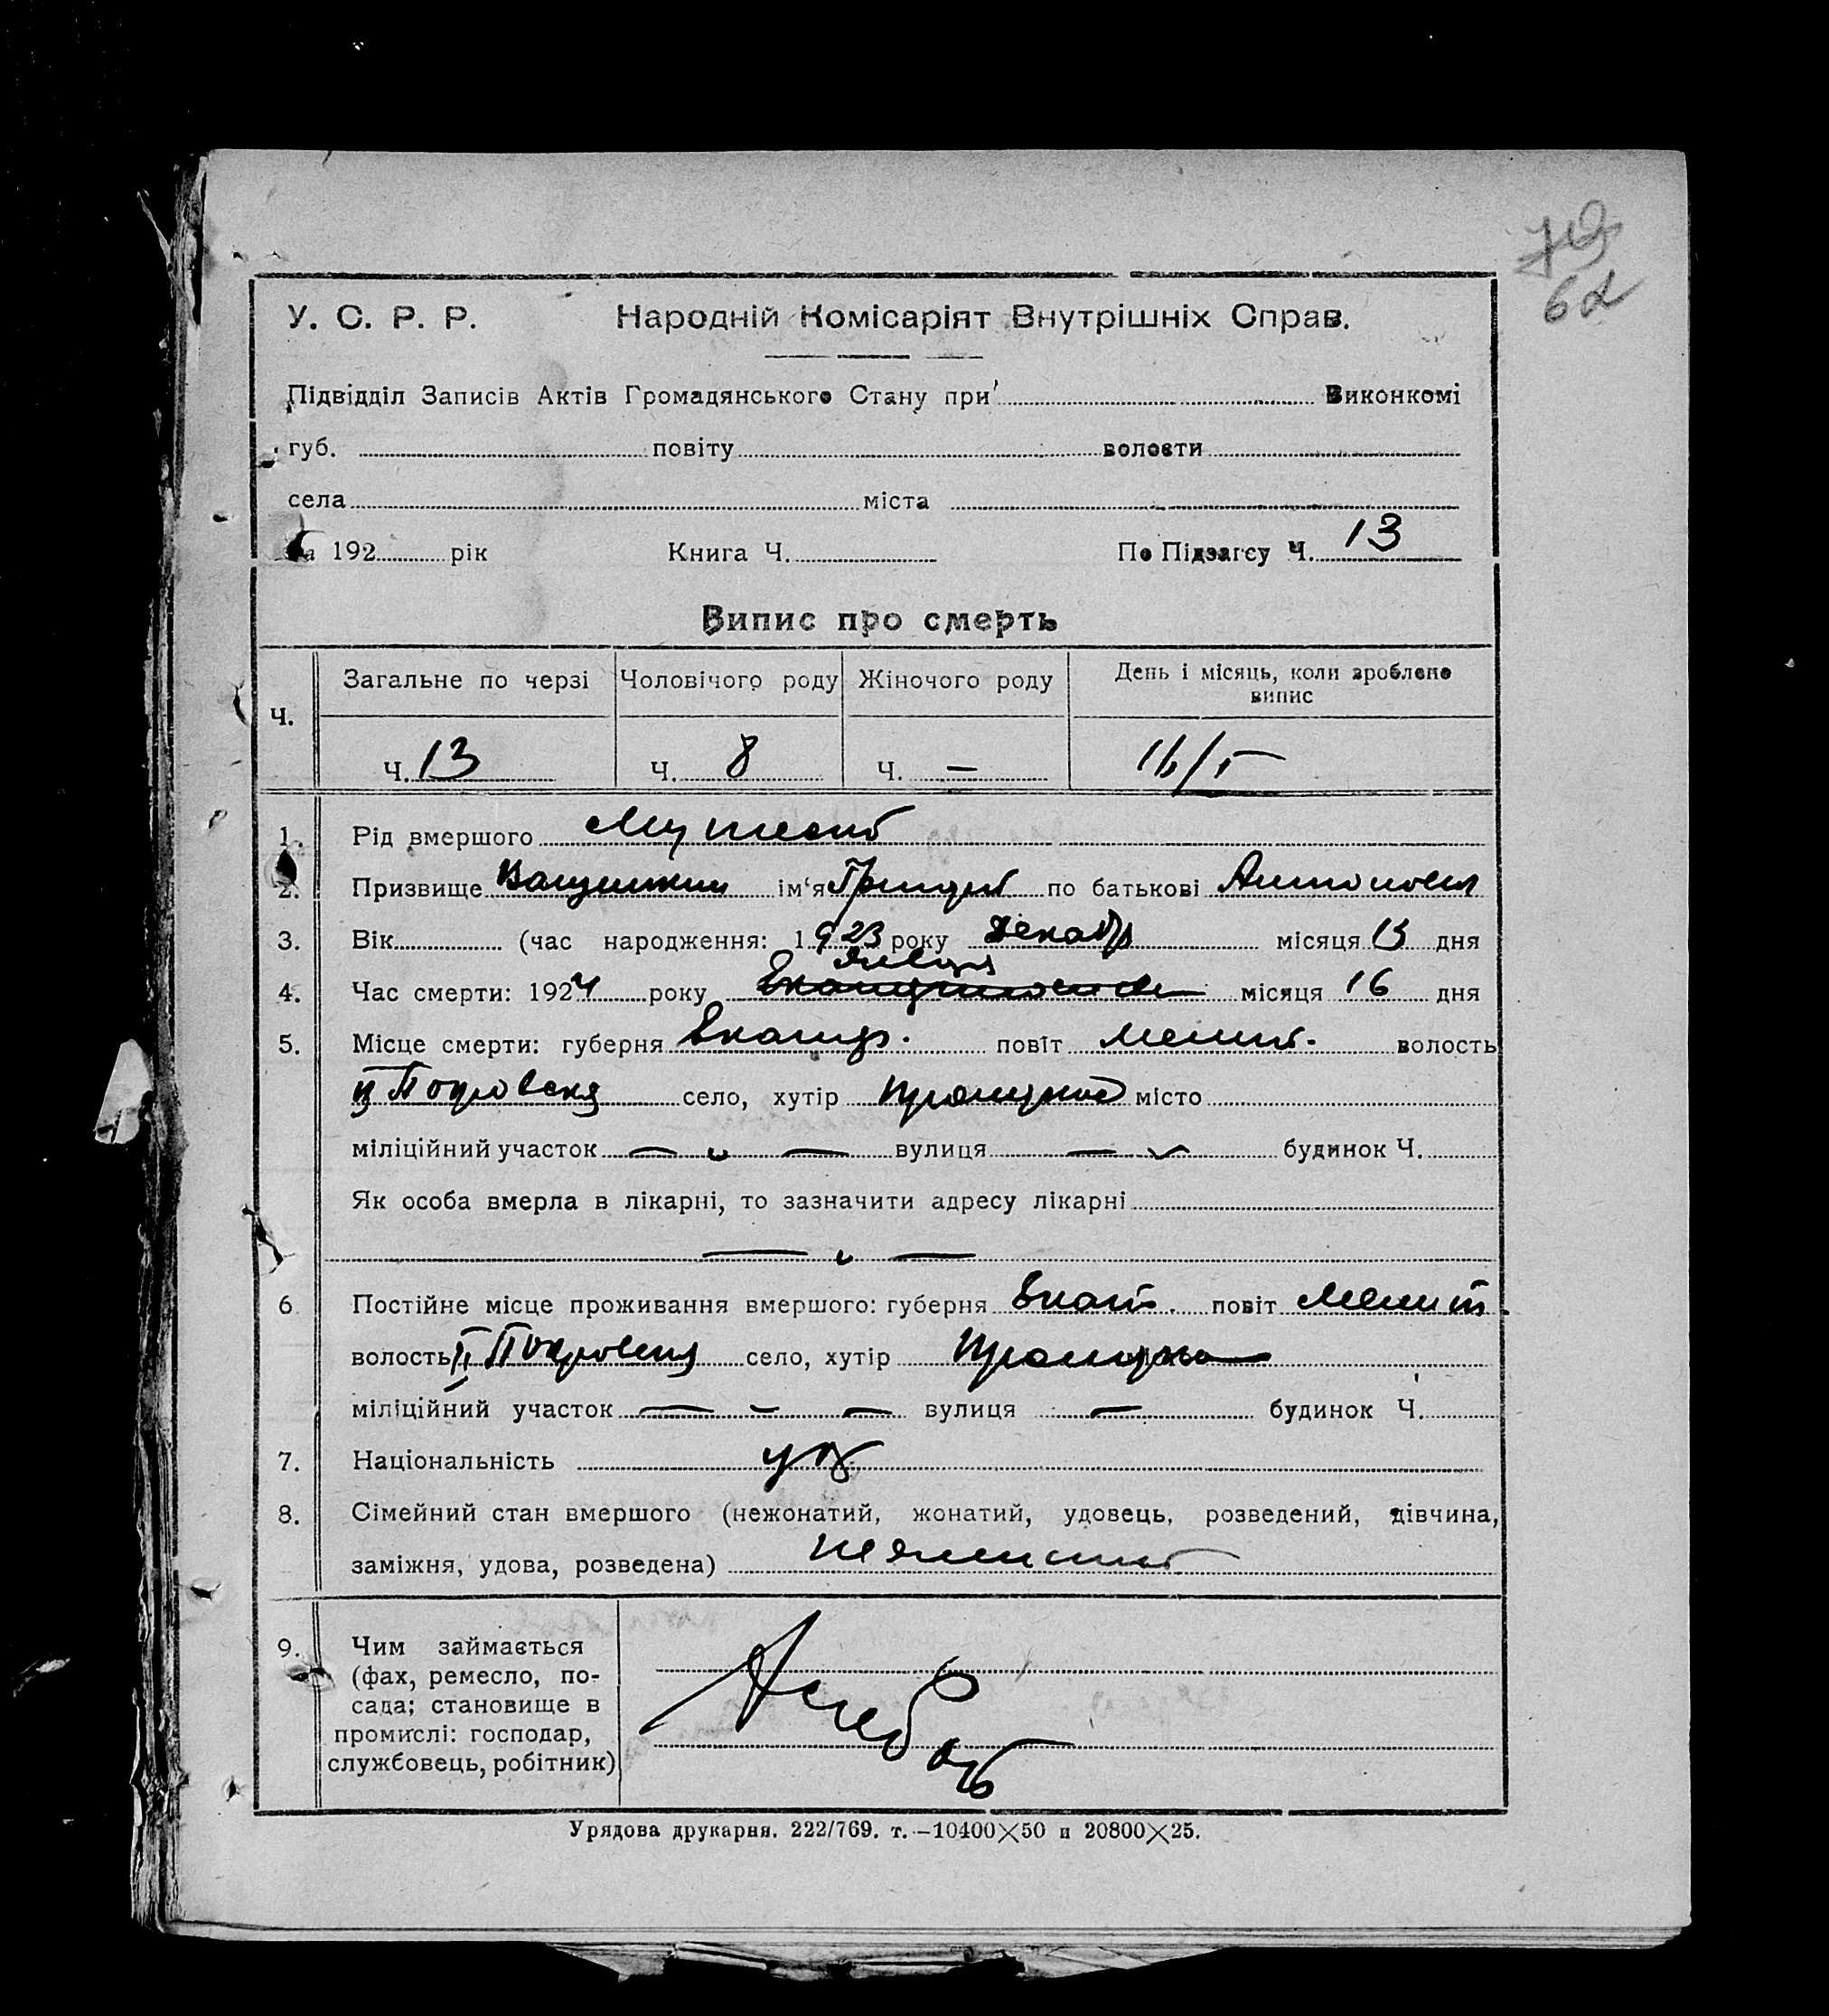 62
У. С. Р. Р. Народній Комісаріят Внутрішніх Справ.
Підвідділ Записів Актів Громадянського Стану при Виконкомі
губ. повіту волости
села міста
за 192 рік Книга Ч. По Підзагсу Ч. 13
Випис про смерть
Ч. Загальне по черзі Чоловічого роду Жіночого роду День і місяць, коли зроблено
випис
Ч. 13 Ч. 8 Ч. — 16/I
1. Рід вмершого
2. Призвище ім‘я по батькові
3. Вік (час народження: 1923 року Декабр місяця 13 дня
4. Час смерти: 1924 року Января місяця 16 дня
5. Місце смерти: губерня Екатер. повіт Мелит. волость
II Покровская село, хутір місто
міліційний участок — „ — вулиця — „ будинок Ч.
Як особа вмерла в лікарні, то зазначити адресу лікарні
— „ —
6 Постійне місце проживання вмершого: губерня Екат. повіт Мелит.
волость II Покровская село, хутір
міліційний участок — - — вулиця — будинок Ч.
7. Національність укр
8. Сімейний стан вмершого (нежонатий, жонатий, удовець, розведений, дівчина,
заміжня, удова, розведена)
9. Чим займається
(фах, ремесло, по-
сада; становище в
промислі: господар,
службовець, робітник)
Урядова друкарня. 222/769. т.—10400×50 и 20800×25.